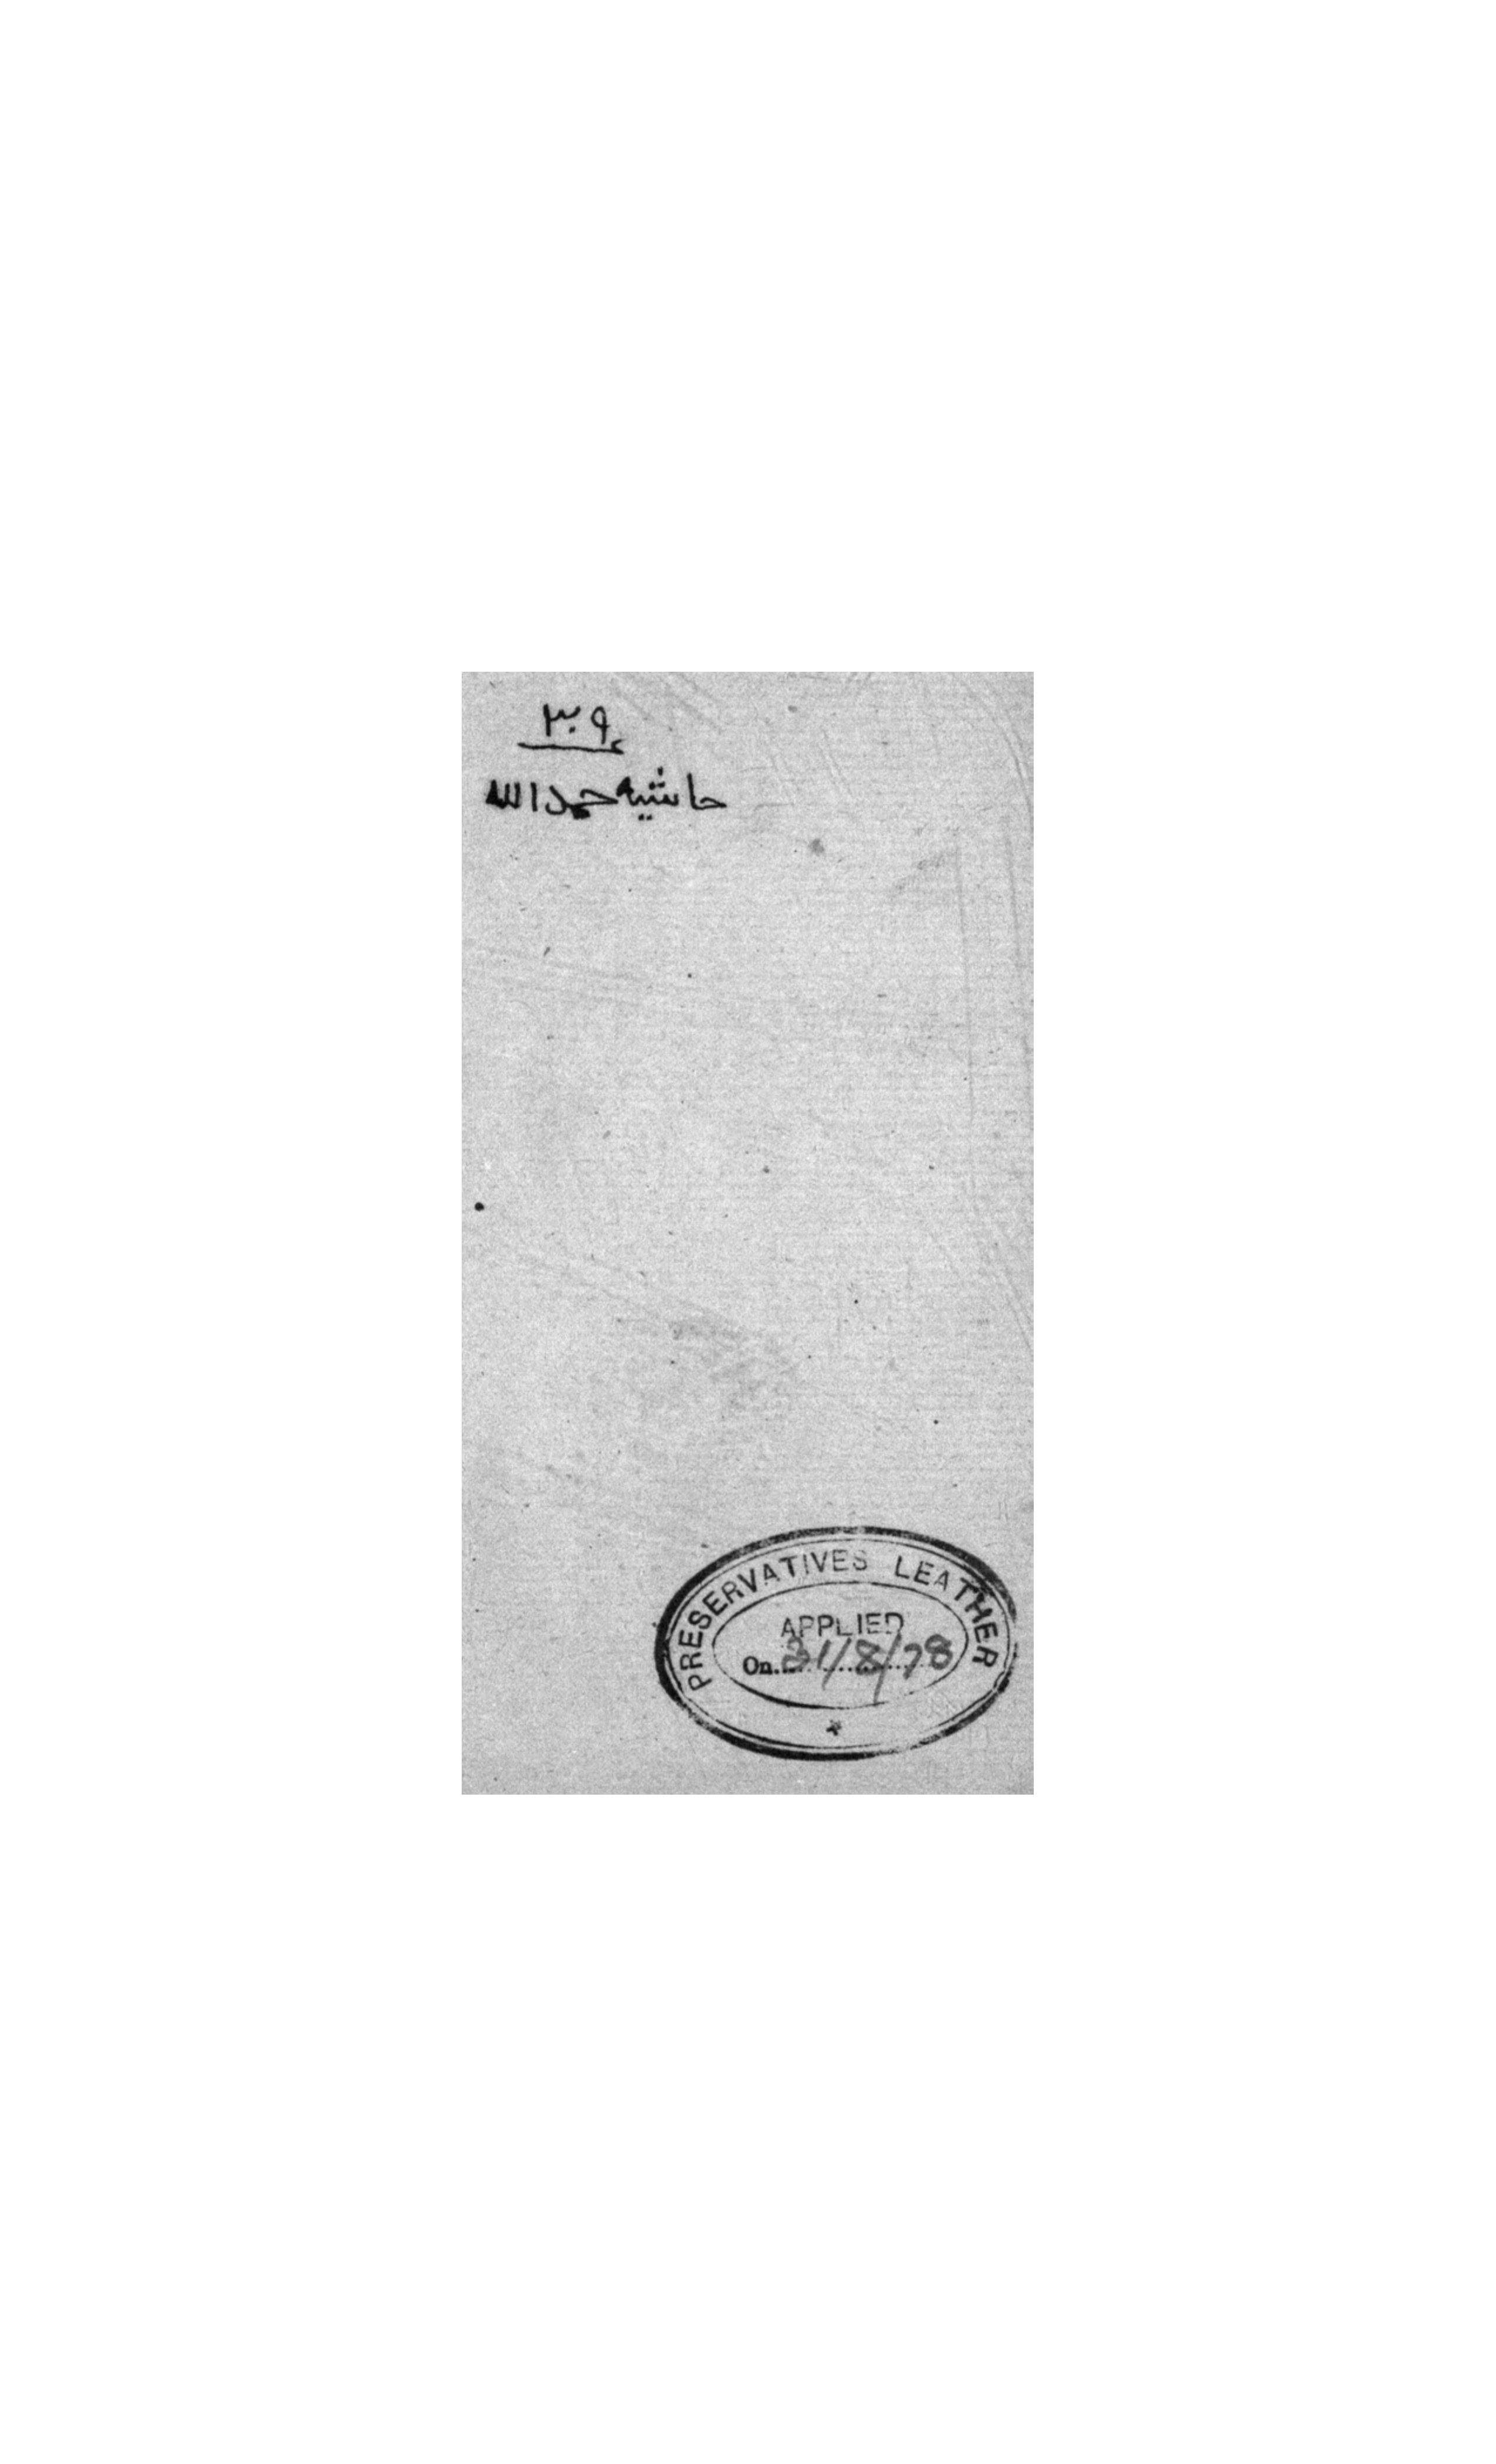 ٣٠٩
حاشیه حمدالله
PRESERVATIVES LEATHER
APPLIED
On 31/8/78